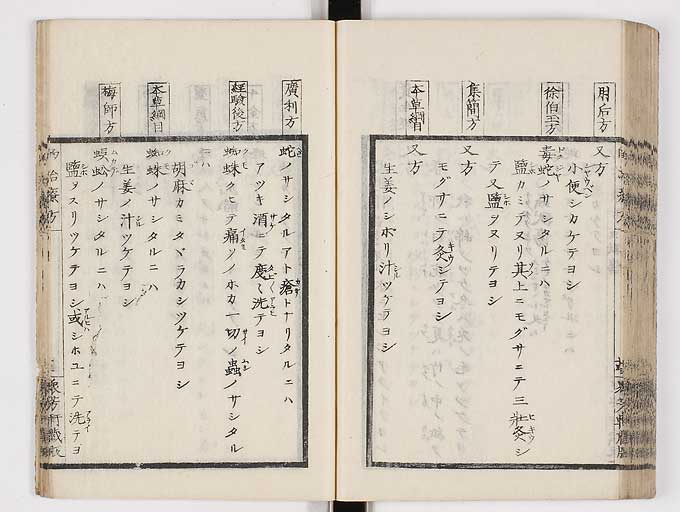 肘后方
又方
小便シカケテヨシ
徐伯玉方
毒蛇ノサシタルニハ
鹽カミテヌリ其上ニモグサニテ三壯灸シ
テ又鹽ヲヌリテヨシ
集簡方
又方
モグサニテ灸シテヨシ
本草綱目
又方
生姜ノシホリ汁ツケテヨシ
廣利方
蛇ノサシタルアト瘡トナリタルニハ
アツキ酒ニテ度〻洗テヨシ
經驗後方
蜘蛛クヒテ痛ソノホカ一切ノ蟲ノサシタル
ニハ
胡麻カミタヾラカシツケテヨシ
本草綱目
蜘蛛ノサシタルニハ
生姜ノ汁ツケテヨシ
梅師方
蜈蚣ノサシタルニハ
鹽ヲスリツケテヨシ或シホユニテ洗テヨ